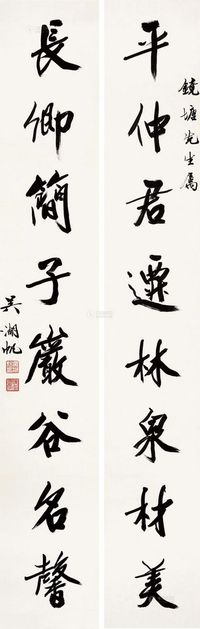 鏡塘先生屬
平仲君遷林泉材美
長卿簡子巖谷名馨
吳湖帆